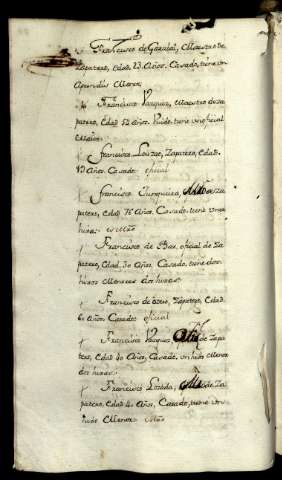 Francisco de Garabal, Maestro de
Zapatero, edad 23 Años. Casado, tiene un
Aprendiz Menor
Francisco Vazquez, Maestro de Za
patero, Edad 52 Años. Viudo, tiene un oficial
Francisco Zapatero, Edad
Años. Casado oficial
Francisco de Za
patero, Edad 76 Años. Casado, tiene una
hixa
Francisco de Bas, oficial de Za
patero, Edad 30 Años, Casado, tiene dos
hixos Menores dos hixas
Francisco de Zapatero, Edad
60 Años. Casado oficial
Francisco Vazquez de Zapa
tero, Edad 40 Años, Casado, un hixo Menor
dos hixas
Francisco Lozada, de Za
patero, Edad 40 Años, Casado, tiene un
hixo Menor